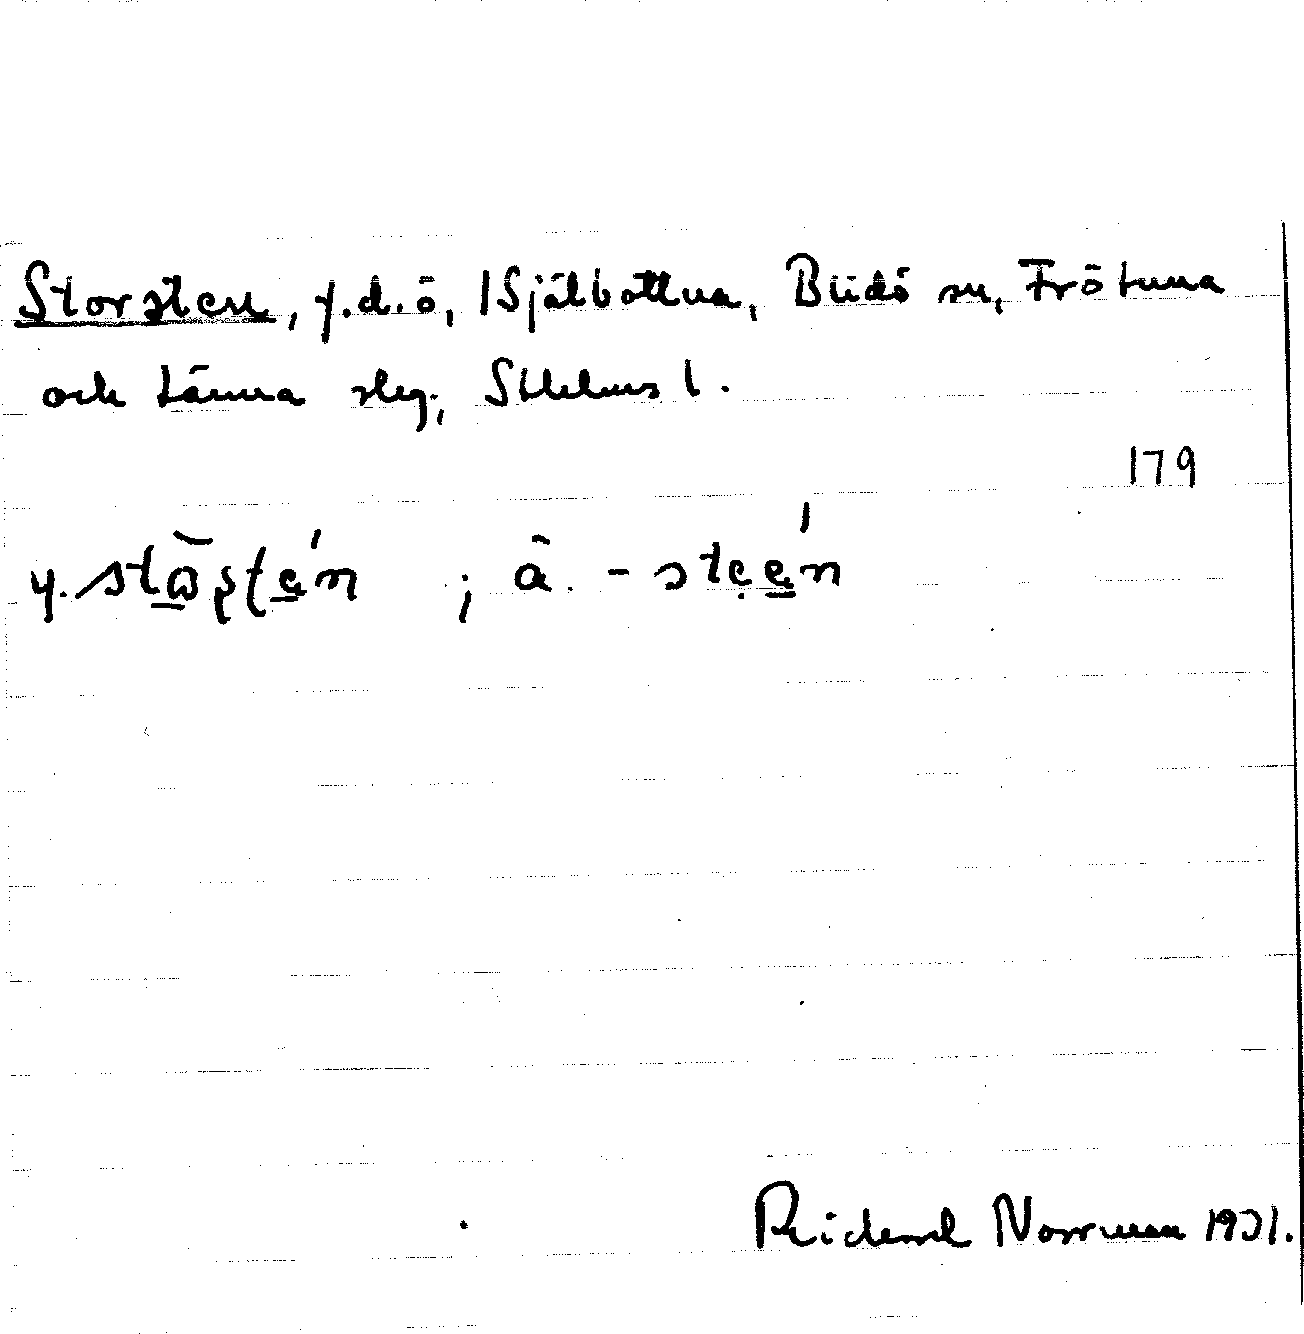 Storsten, y.d.ö, 1 Själbottna, Blidö sn, Frötuna
och Länna slg., Sthlms l.
179
y. stɷ̀ʂʈe̲ń ; ä. -stẹe̲ń
Ridemel Norrman 1931.